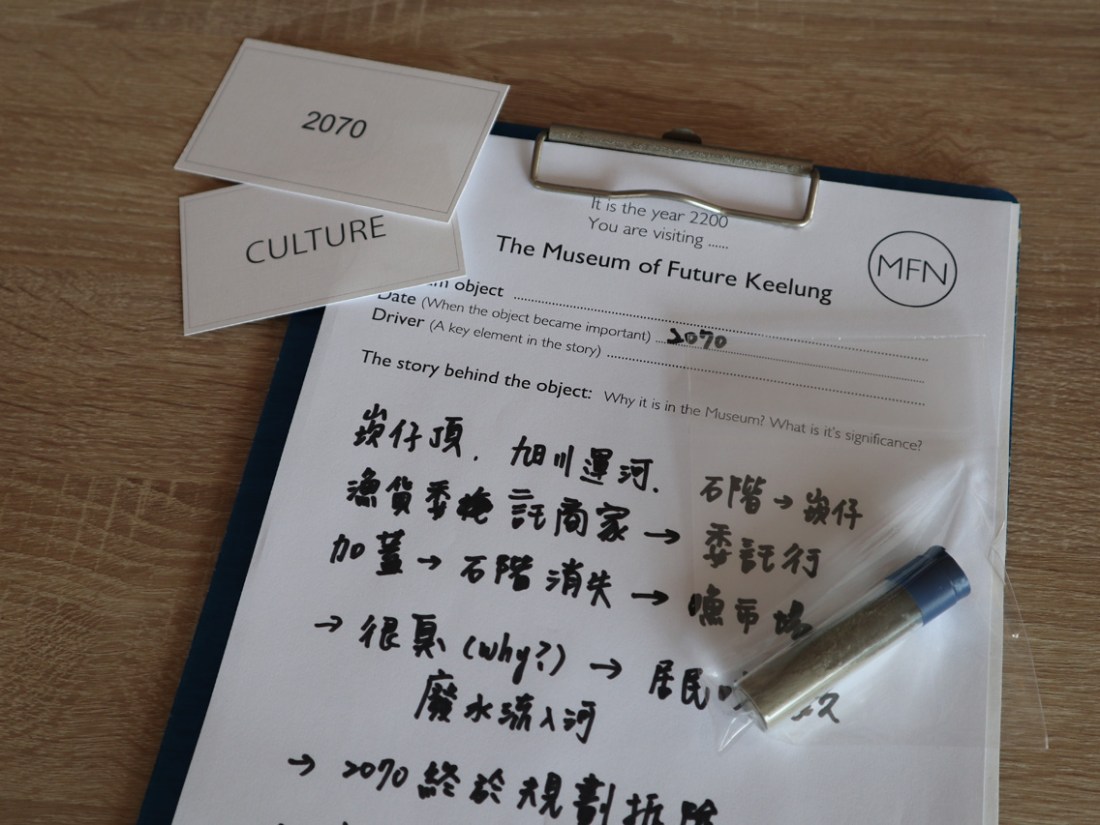 2070
CULTURE
It is the year 2200
You are visiting ......
The Museum of Future Keelung
MFN
object
Date (When the object became important) 2070
Driver (A key element in the story)
The story behind the object: Why it is in the Museum? What is it's significance?
崁仔頂. 旭川運河. 石階→崁仔
漁貨委 託商家→委託行
加蓋→石階消失→漁市場
→很臭(why?)→居民
廢水流入河
→2070終於規劃拆除